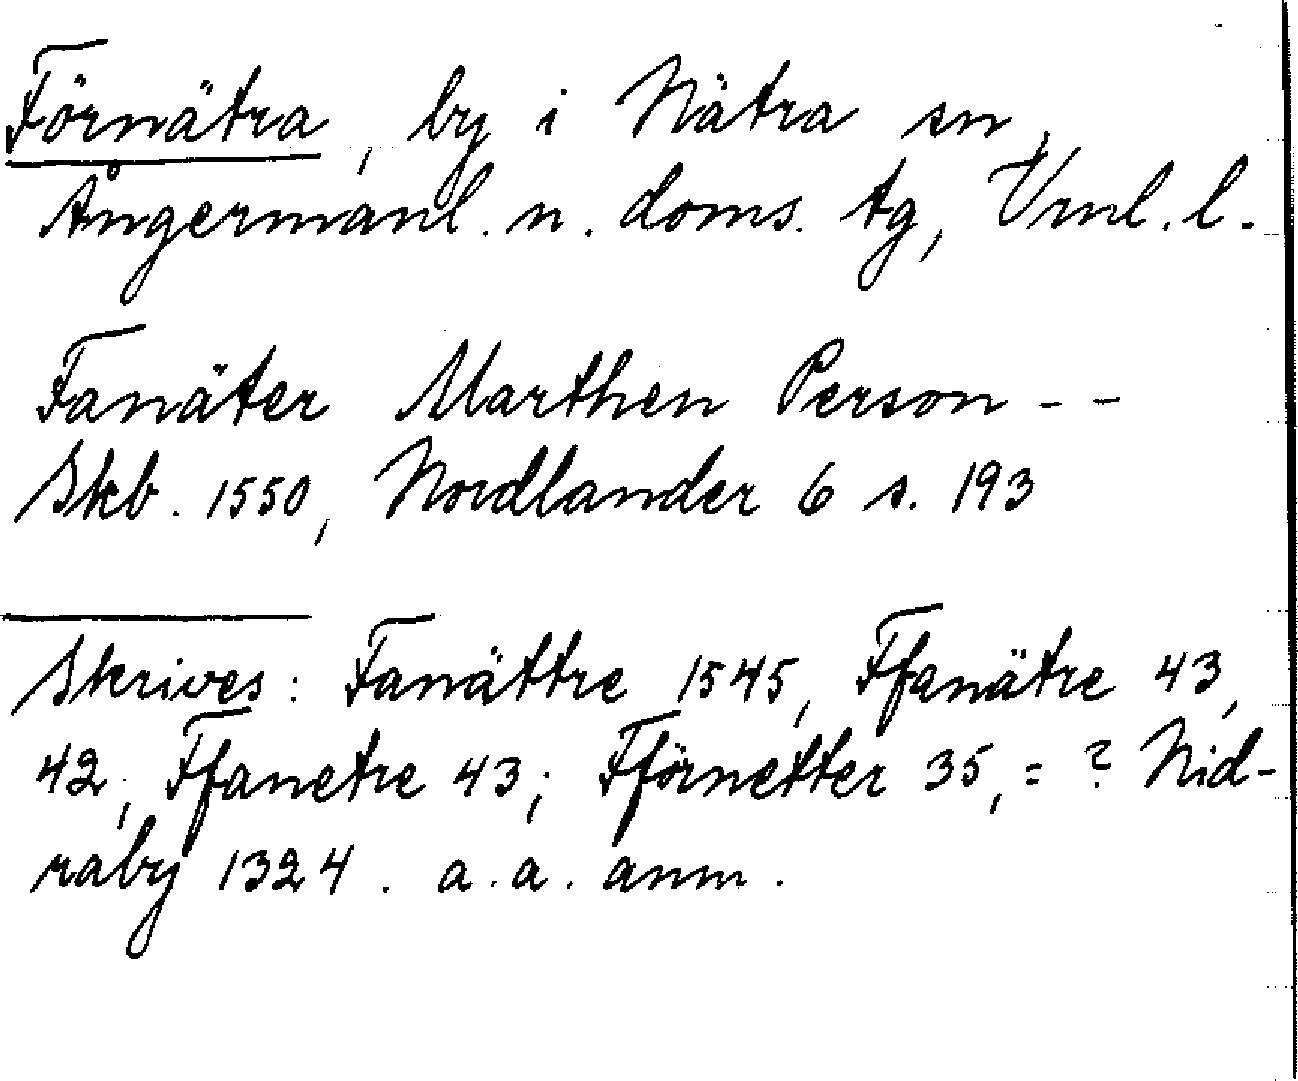 Förnätra, by i Nätra sn,
Ångermanl. n. doms. tg, Vrnl. l.
Fanäter Marthen Person - -
Skb. 1550, Nordlander 6 s. 193
Skrives: Fanättre 1545, Ffanätre 43,
42, Ffanetre 43; Fförnetter 35, = ? Nid-
raby 1324. a. a. anm.